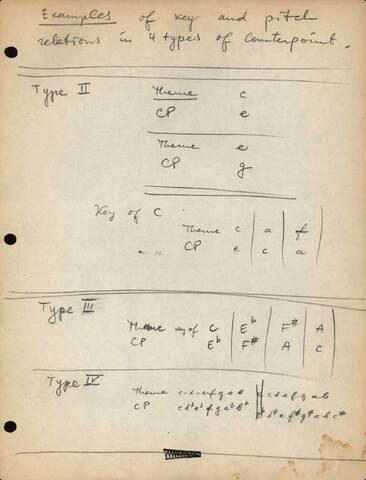 Examples of key and pitch
relations in 4 types of Counterpoint.
Type II
Theme c
CP e
Theme e
CP g
Key of C
Theme c | a | f
CP e | c | a
Type III
Theme key of C | E♭ | F# | A
CP E♭ | F# | A | C
Type IV
Theme c d e f g a b || c d e f g a b
CP c d♭ e♭ f g a♭ b♭ || c# d# e f# g# a b c#